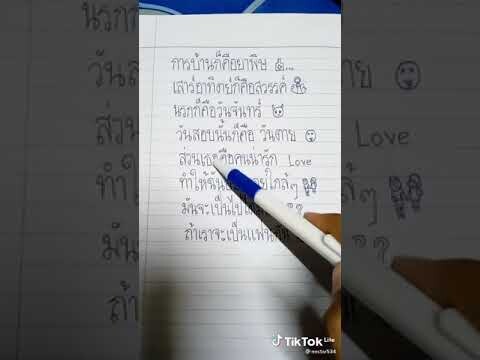 การบ้านก็คือยาพิษ ...
เสาร์อาทิตย์ก็คือสวรรค์
นรกก็คือวันจันทร์
วันสอบนั้นก็คือ วันตาย
ส่วนเธอคือคนน่ารัก Love
ทำให้ฉัน ใกล้ๆ
มันจะเป็นไป ??
ถ้าเราจะเป็นแฟนกัน
TikTok Lite